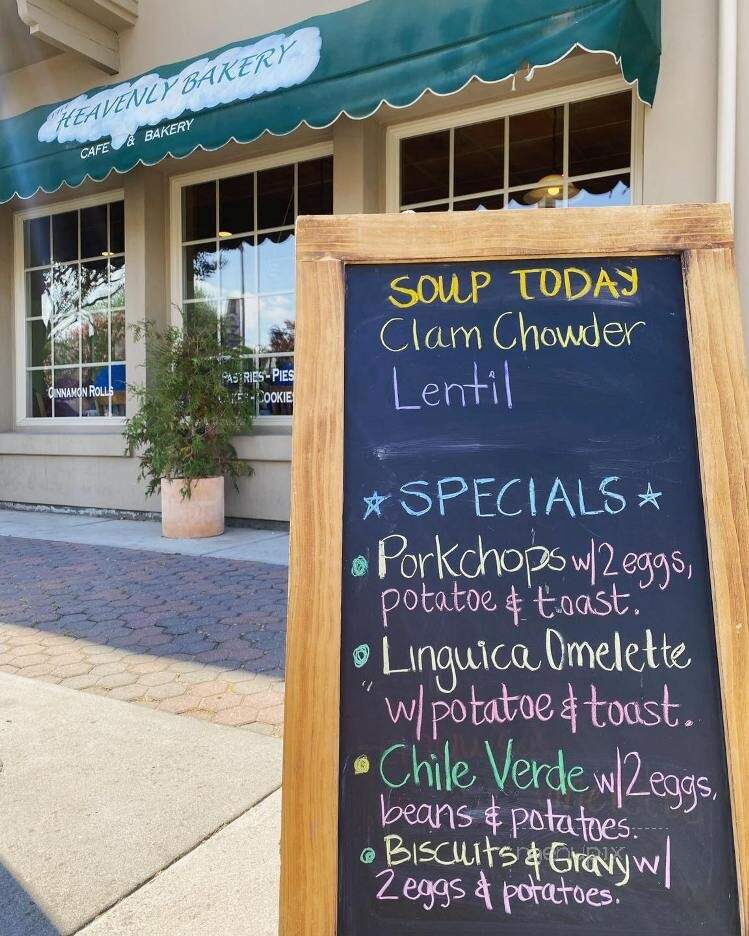 THE
HEAVENLY BAKERY
CAFE & BAKERY
CINNAMON ROLLS
PASTRIES - PIES
CAKES - COOKIES
SOUP TODAY
Clam Chowder
Lentil
SPECIALS
Porkchops w/2eggs,
potatoe & toast.
Linguica Omelette
w/potatoe & toast.
Chile Verde w/2eggs,
beans & potatoes.
Biscuits & Gravy w/
2eggs & potatoes.